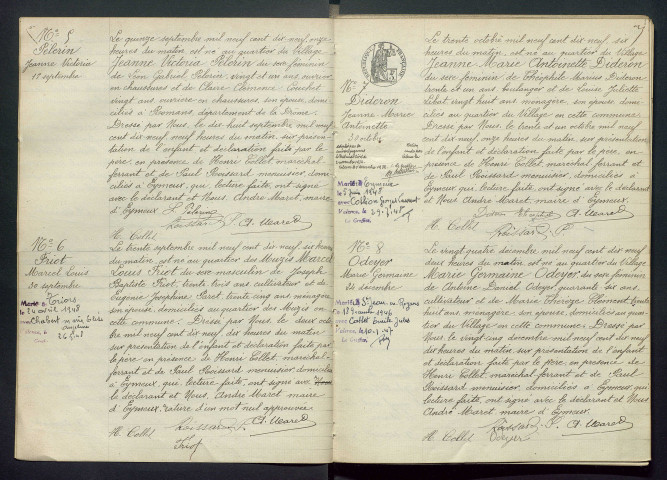 No 5
Pélerin
Jeanne Victoria
15 septembre
Le quinze septembre mil neuf cent dix neuf, onze
heures du matin est née au quartier du Village
Jeanne Victoria Pélerin du sexe féminin
de Léon Gabriel Pélerin, vingt et un ans ouvrier
en chaussures et de Claire Clémence Couchet
vingt ans ouvrière en chaussures, son épouse domi-
ciliés à Romans, département de la Drôme.
Dressé par Nous, le dix huit septembre mil neuf
cent dix neuf, neuf heures du matin, sur présen-
tation de l'enfant et déclaration faite par le
père, en présence de Henri Collet maréchal-
ferrant et de Paul Roissard menuisier, domi-
ciliés à Eymeux, qui, lecture faite, ont signé
avec le déclarant et Nous, André Maret, maire
d'Eymeux.
H. Collet Roissard P. A. Maret
No 6
Friot
Marcel Louis
30 septembre
Marié à Triors
le 24 avril 1948
Le trente septembre mil neuf cent dix neuf six heures
du matin, est né au quartier des Mugis Marcel
Louis Friot du sexe masculin de Joseph
Baptiste Friot, trente trois ans cultivateur et de
Eugénie Joséphine Paret, trente cinq ans ménagère
son épouse, domiciliés au quartier des Mugis en
cette commune. Dressé par Nous, le deux octo-
bre mil neuf cent dix neuf, dix heures du matin
sur présentation de l'enfant, déclaration faite par
le père en présence de Henri Collet, maréchal-
ferrant et de Paul Roissard menuisier domiciliés
à Eymeux, qui, lecture faite, ont signé avec
le déclarant et Nous, André Maret maire
d'Eymeux. rature d'un mot nul approuvée
H. Collet Roissard P. A. Maret
Friot
No 7
Dideron
Jeanne Marie
Antoinette
30 octobre
Le trente octobre mil neuf cent dix neuf, six
heures du matin, est née au quartier du Village
Jeanne Marie Antoinette Dideron
du sexe féminin de Théophile Marius Dideron
trente et un ans, boulanger et de Louise Juliette
Lebat vingt huit ans ménagère, son épouse domi-
ciliés au quartier du Village en cette commune
Dressé par Nous, le trente et un octobre mil neuf
cent dix neuf, dix heures du matin, sur présentation
de l'enfant et déclaration faite par le père, en
présence de Henri Collet, maréchal ferrant et
de Paul Roissard, menuisier, domiciliés à
Eymeux, qui, lecture faite, ont signé avec le
déclarant et Nous André Maret maire d'Eymeux
A. Maret
H. Collet Roissard P.
No 8
Odeyer
Marie Germaine
24 décembre
Le vingt quatre décembre mil neuf cent dix neuf
deux heures du matin, est née au quartier du Village
Marie Germaine Odeyer du sexe féminin
de Antoine Daniel Odeyer quarante six ans,
cultivateur et de Marie Thérèze Clément, trente
huit ans, ménagère son épouse, domiciliés au quar-
tier du Village en cette commune. Dressé par
Nous, le vingt cinq décembre mil neuf cent dix neuf
dix heures du matin, sur présentation de l'enfant
et déclaration faite par le père, en présence de
Henri Collet, maréchal ferrant et de Paul
Roissard menuisier, domiciliés à Eymeux, qui
lecture faite, ont signé avec le déclarant et Nous.
André Maret, maire d'Eymeux.
Roissard P. A. Maret
H. Collet Odeyer